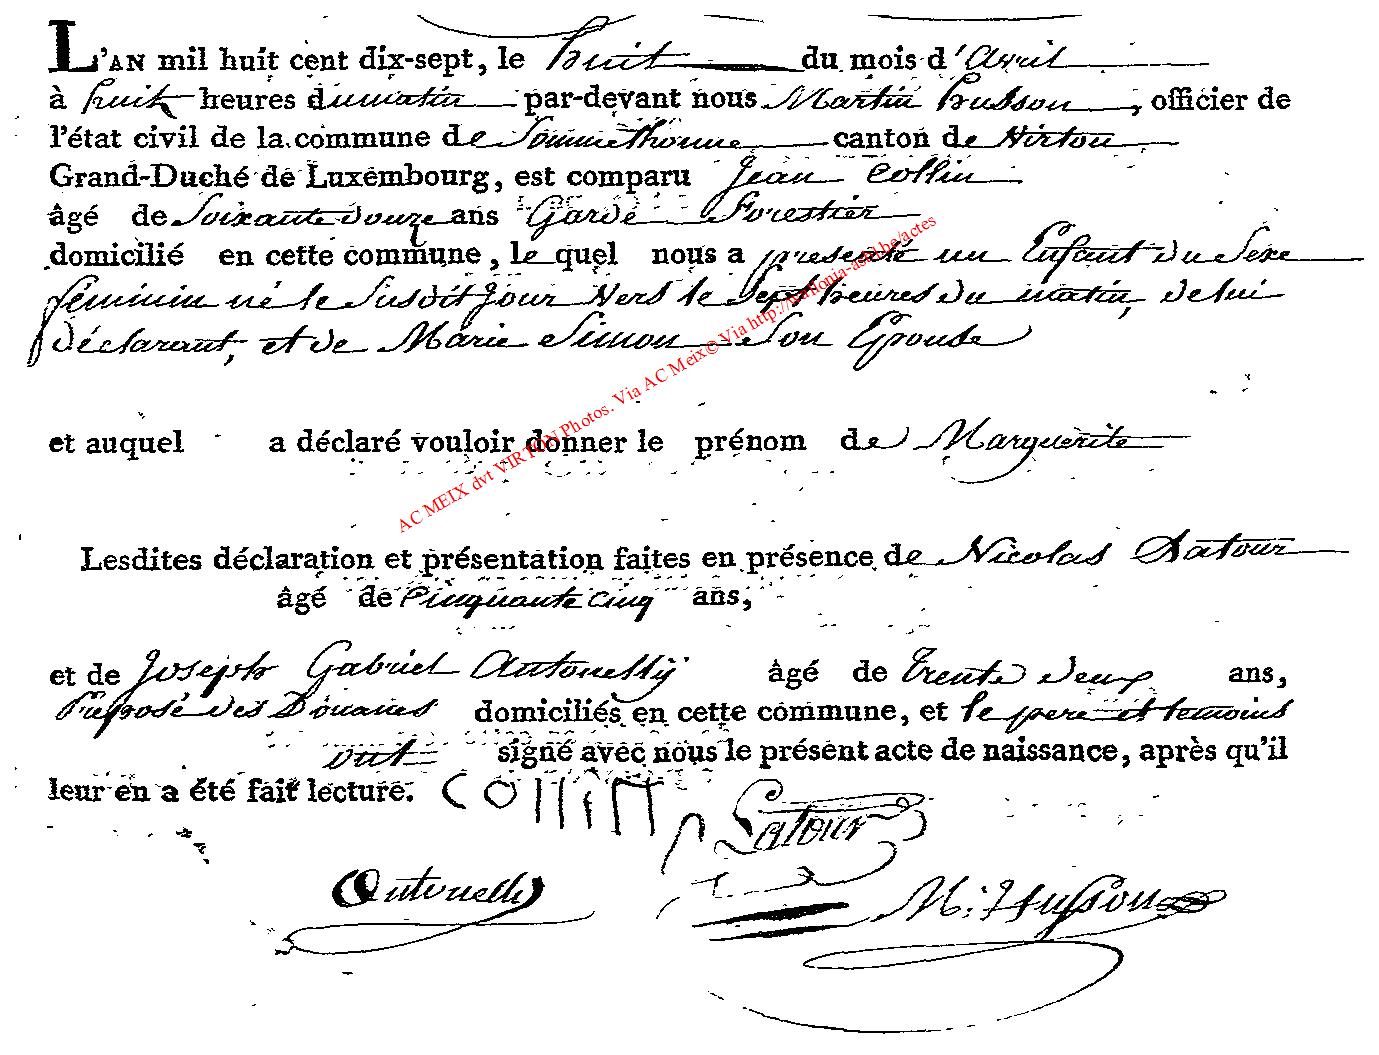 L'AN mil huit cent dix-sept, le huit du mois d'Avril
à huit heures du matin par-devant nous Martin husson, officier de
l'état civil de la commune de Sommethonne canton de Virton
Grand-Duché de Luxembourg, est comparu Jean Collin
âgé de Soixante douze ans Garde Forestier
domicilié en cette commune, le quel nous a presenté un Enfant du Sexe
féminin né le Susdit Jour Vers le Sept heures du matin, de lui
déclarant, et de Marie Simon Son Epouse
et auquel a déclaré vouloir donner le prénom de Marguerite
AC MEIX dvt VIRTON Photos. Via AC Meix© Via http://wallonia-asbl.be/actes
Lesdites déclaration et présentation faites en présence de Nicolas Latour
âgé de Cinquante cinq ans,
et de Joseph Gabriel Antonelly âgé de trente deux ans,
Preposé des Douanes domiciliés en cette commune, et le pere et temoins
ont signé avec nous le présent acte de naissance, après qu'il
leur en a été fait lecture. COllin
Latour
Antonelly M: Husson